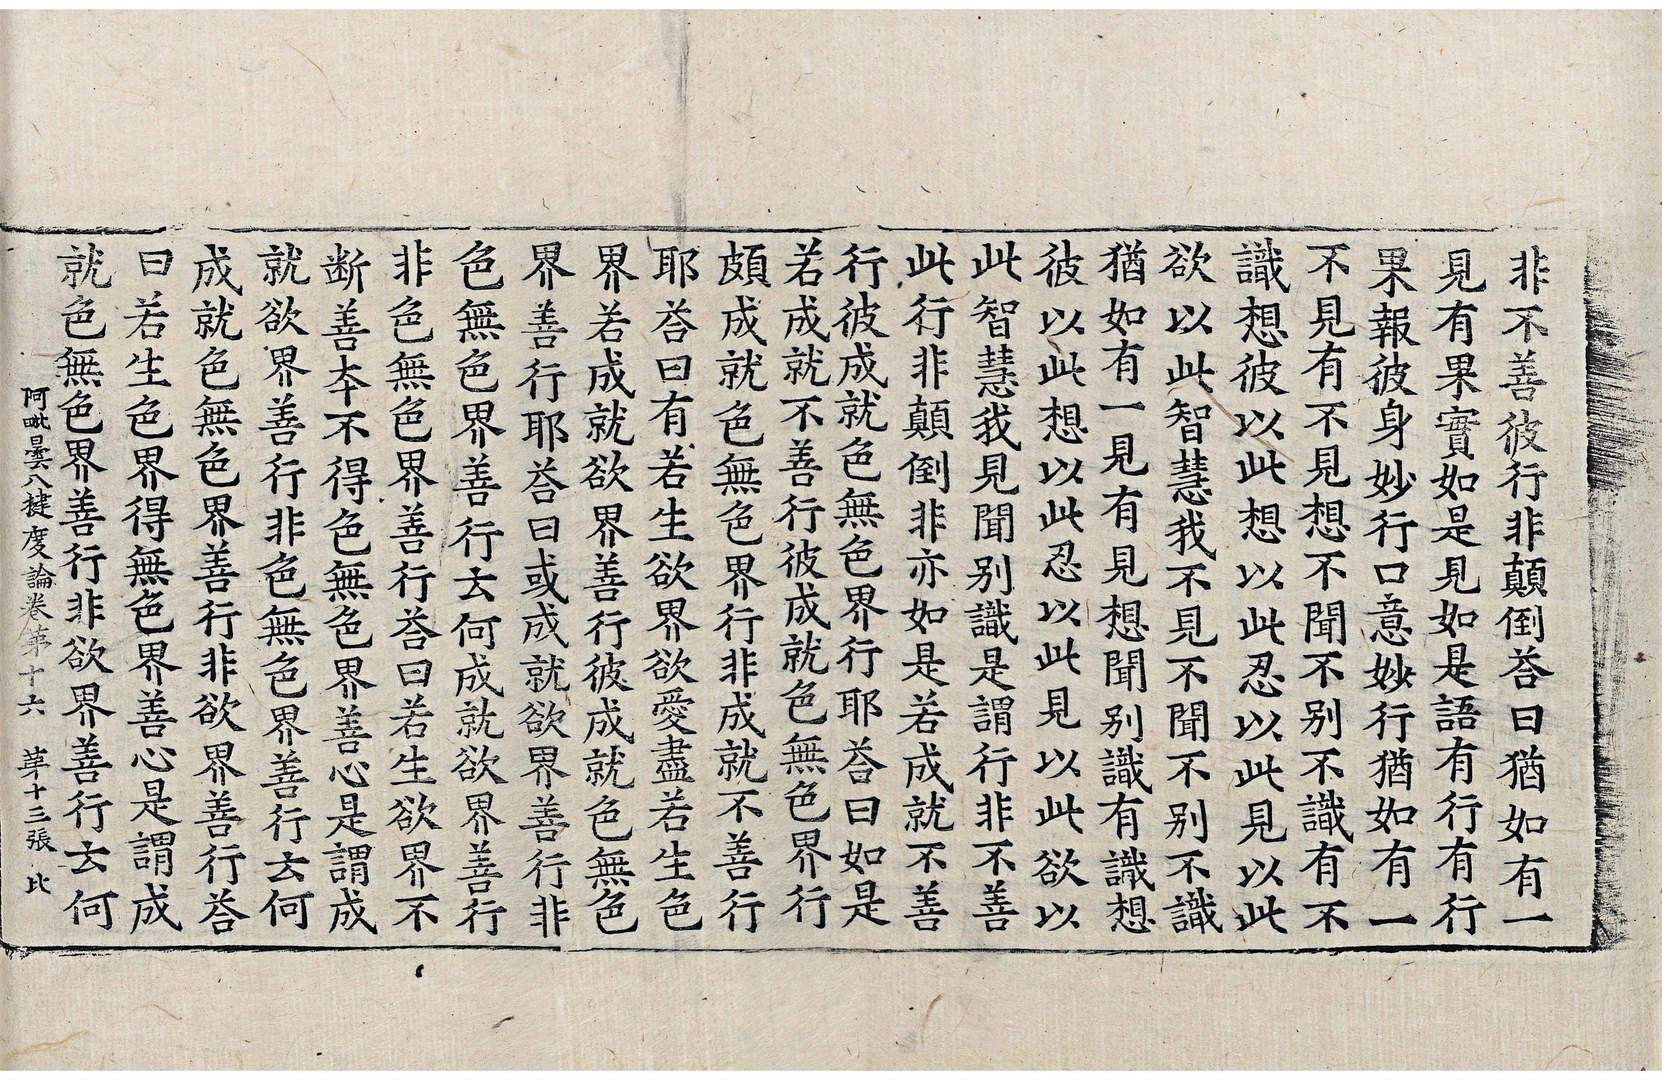 非不善彼行非顛倒荅曰猶如有一
見有果實如是見如是語有行有行
果報彼身妙行口意妙行猶如有一
不見有不見想不聞不别不識有不
識想彼以此想以此忍以此見以此
欲以此智慧我不見不聞不别不識
猶如有一見有見想聞别識有識想
彼以此想以此忍以此見以此欲以
此智慧我見聞别識是謂行非不善
此行非顛倒非亦如是若成就不善
行彼成就色無色界行耶荅曰如是
若成就不善行彼成就色無色界行
頗成就色無色界行非成就不善行
耶荅曰有若生欲界欲愛盡若生色
界若成就欲界善行彼成就色無色
界善行耶荅曰或成就欲界善行非
色無色界善行云何成就欲界善行
非色無色界善行荅曰若生欲界不
断善夲不得色無色界善心是謂成
就欲界善行非色無色界善行云何
成就色無色界善行非欲界善行荅
曰若生色界得無色界善心是謂成
就色無色界善行非欲界善行云何
阿毗曇八揵度論卷苐十六 苐十三張 比